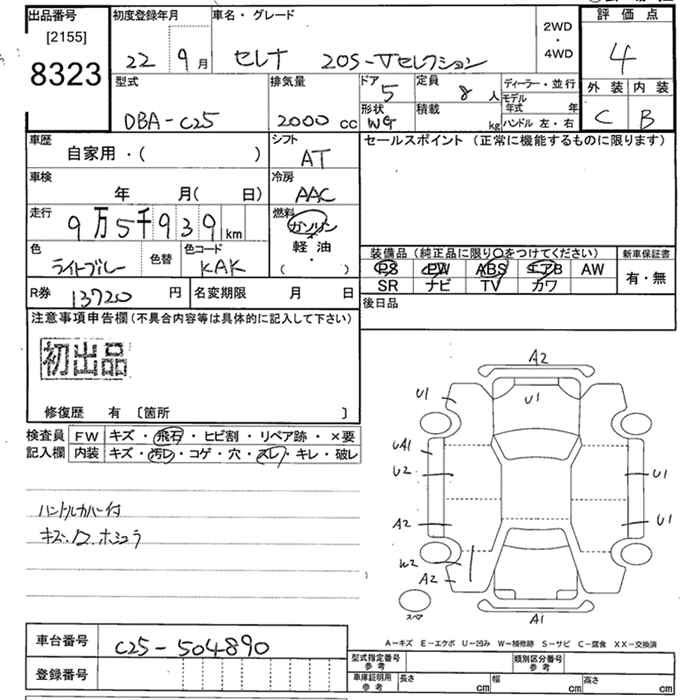 出品番号 初度登録年月 車名・グレード 2WD・4WD 評価点
[2155]
8323 22 9月 セレナ 20S-Vセレクション 4
型式 排気量 ドア 定員 ディーラー・並行 外装 内装
5 8人 モデル年式 年
DBA-C25 2000cc 形状 積載 C B
WG kg ハンドル 左・右
車歴 シフト セールスポイント (正常に機能するものに限ります)
自家用・( ) AT
車検 冷房
年 月( 日) AAC
走行 燃料
9万5千939km ガソリン
軽油・( )
色 色替 色コード 装備品 (純正品に限り○をつけてください) 新車保証書
ライトブルー KAK PS PW ABS エアB AW 有・無
SR ナビ TV カワ
R券 13720円 名変期限 月 日 後日品
注意事項申告欄(不具合内容等は具体的に記入して下さい)
初出品
修復歴 有 〔箇所 〕
検査員 FW キズ・飛石・ヒビ割・リペア跡・×要
記入欄 内装 キズ・汚レ・コゲ・穴・スレ・キレ・破レ
ハンドルカバー付
A2
U1 U1
UA1
U2 U1
A2 U1
W2
A2
スペア A1
A-キズ E-エクボ U-凹み W-補修跡 S-サビ C-腐食 XX-交換済
車台番号 C25-504890
登録番号
型式指定番号 参考 類別区分番号 参考
車庫証明用 参考 長さ cm 幅 cm 高さ cm